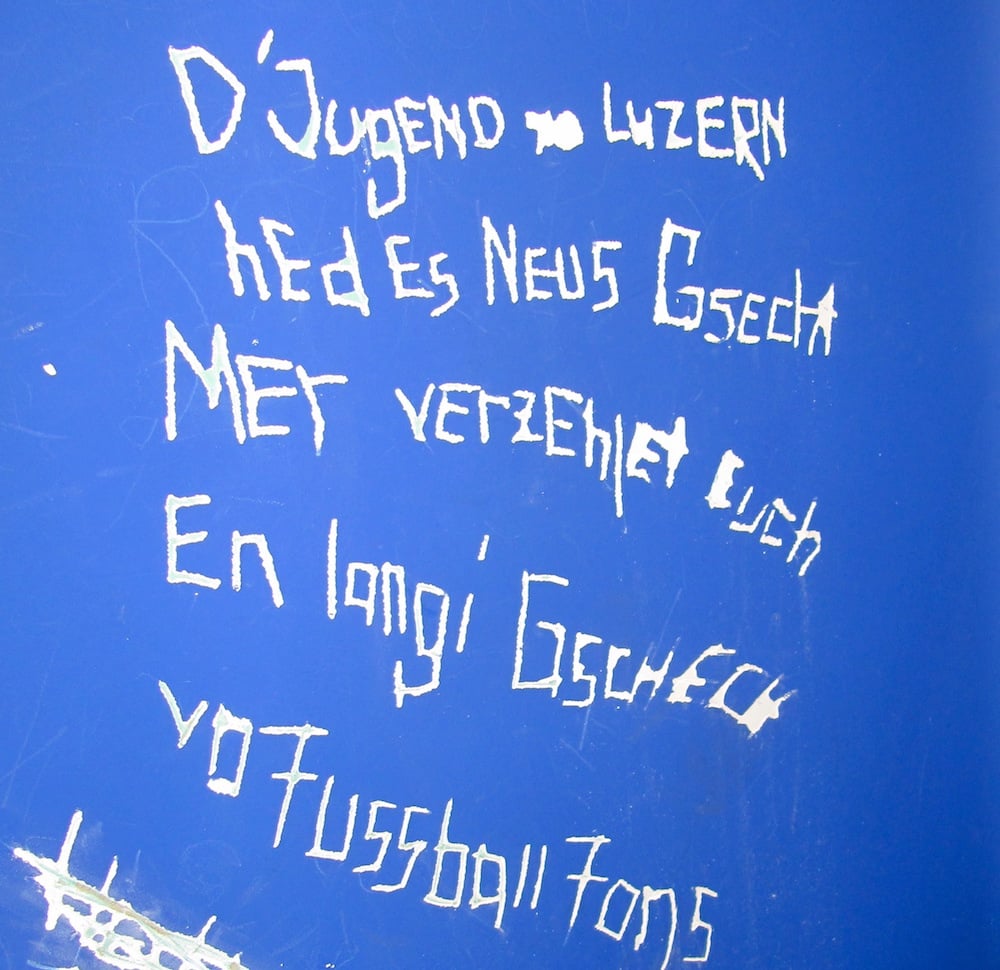 D'Jugend LuZERN
hEd Es NEUS GsEcht
MEr vErzEhlEt Euch
En langi GschEch
vo Fussball Fans